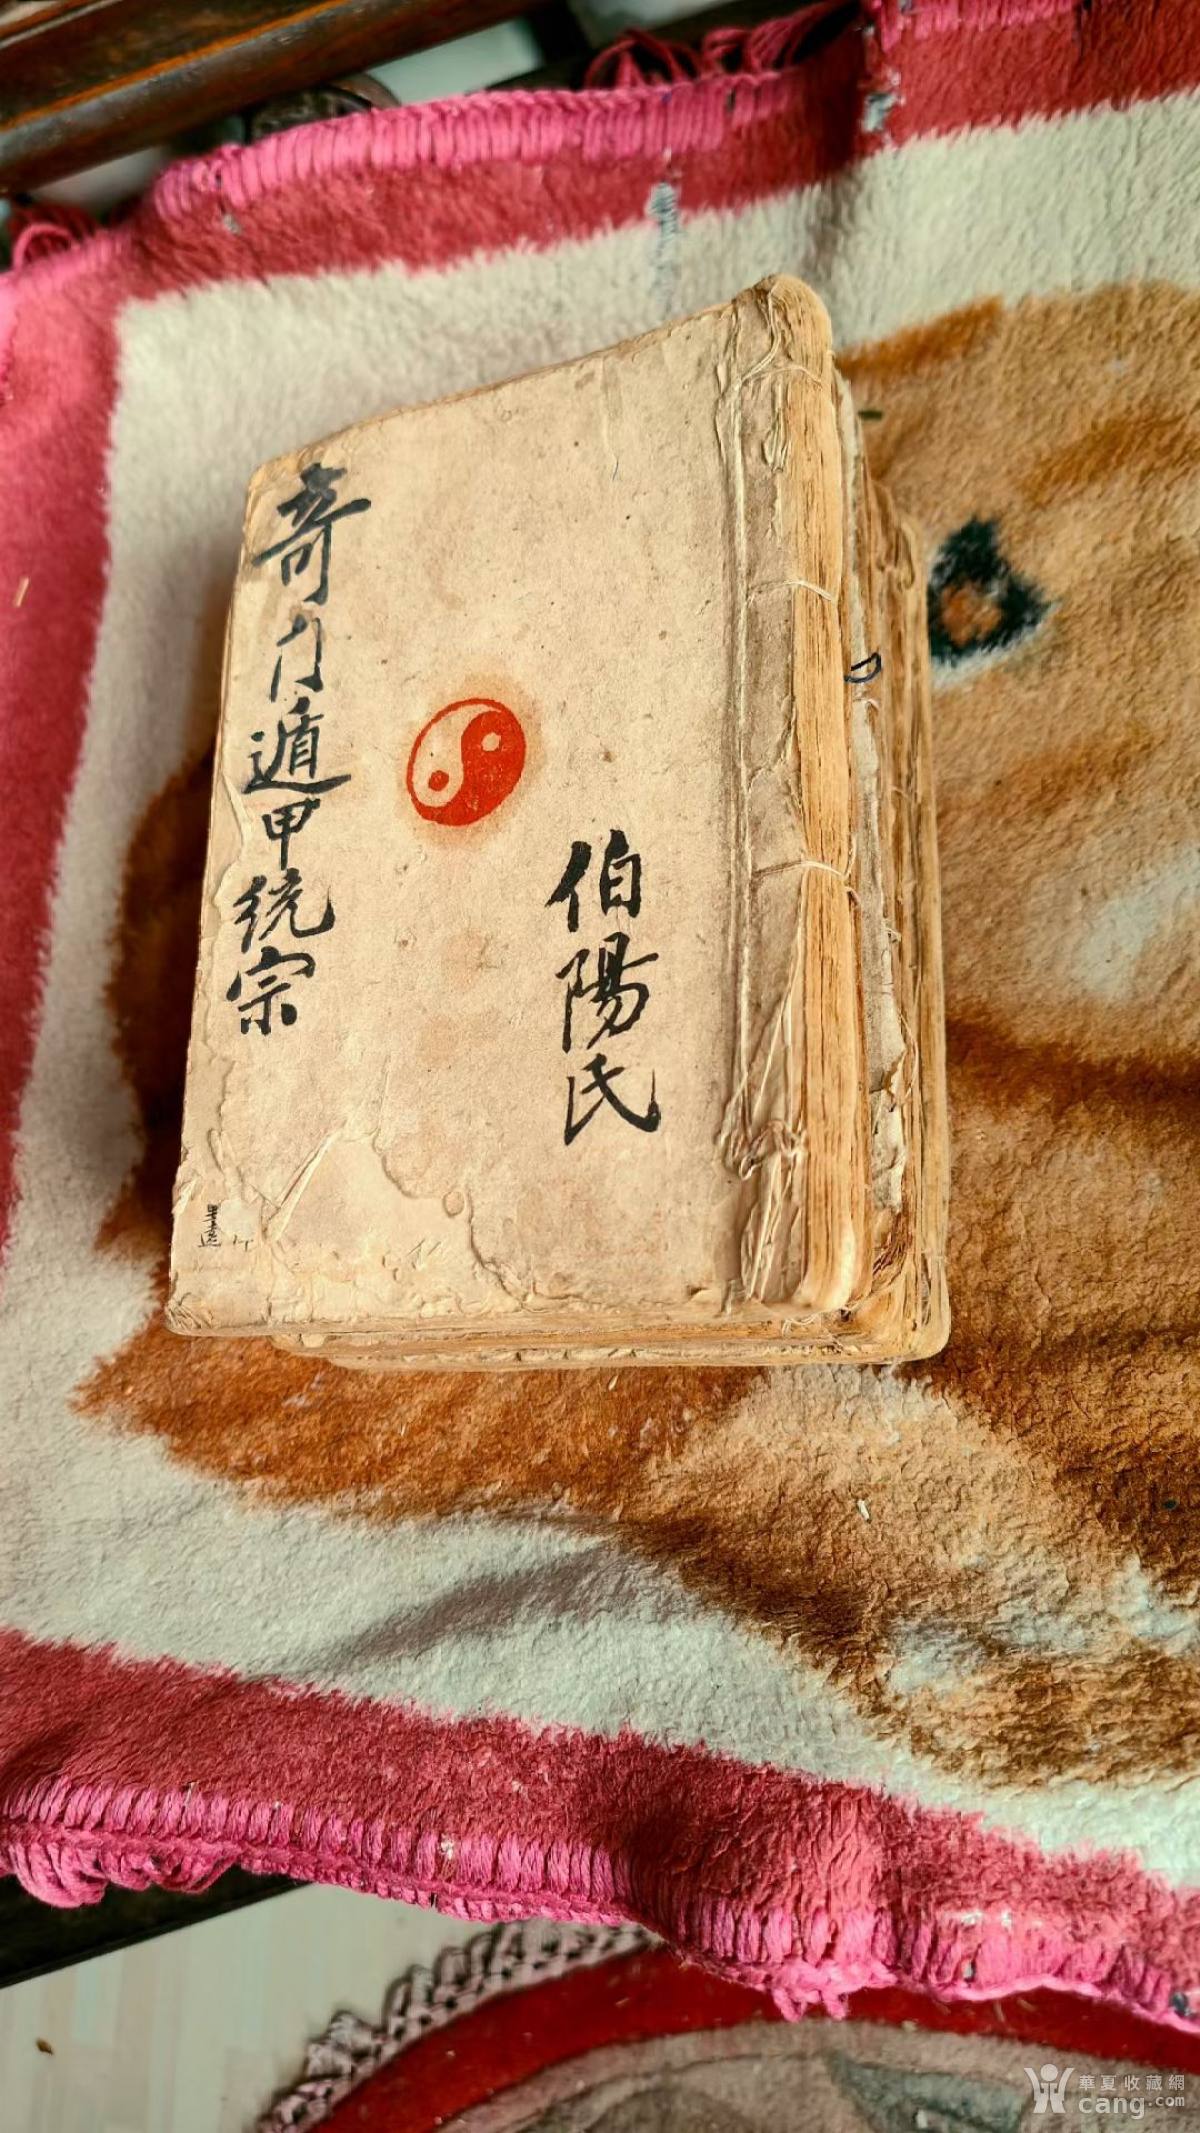 奇门遁甲统宗
伯陽氏
華夏收藏網
cang.com